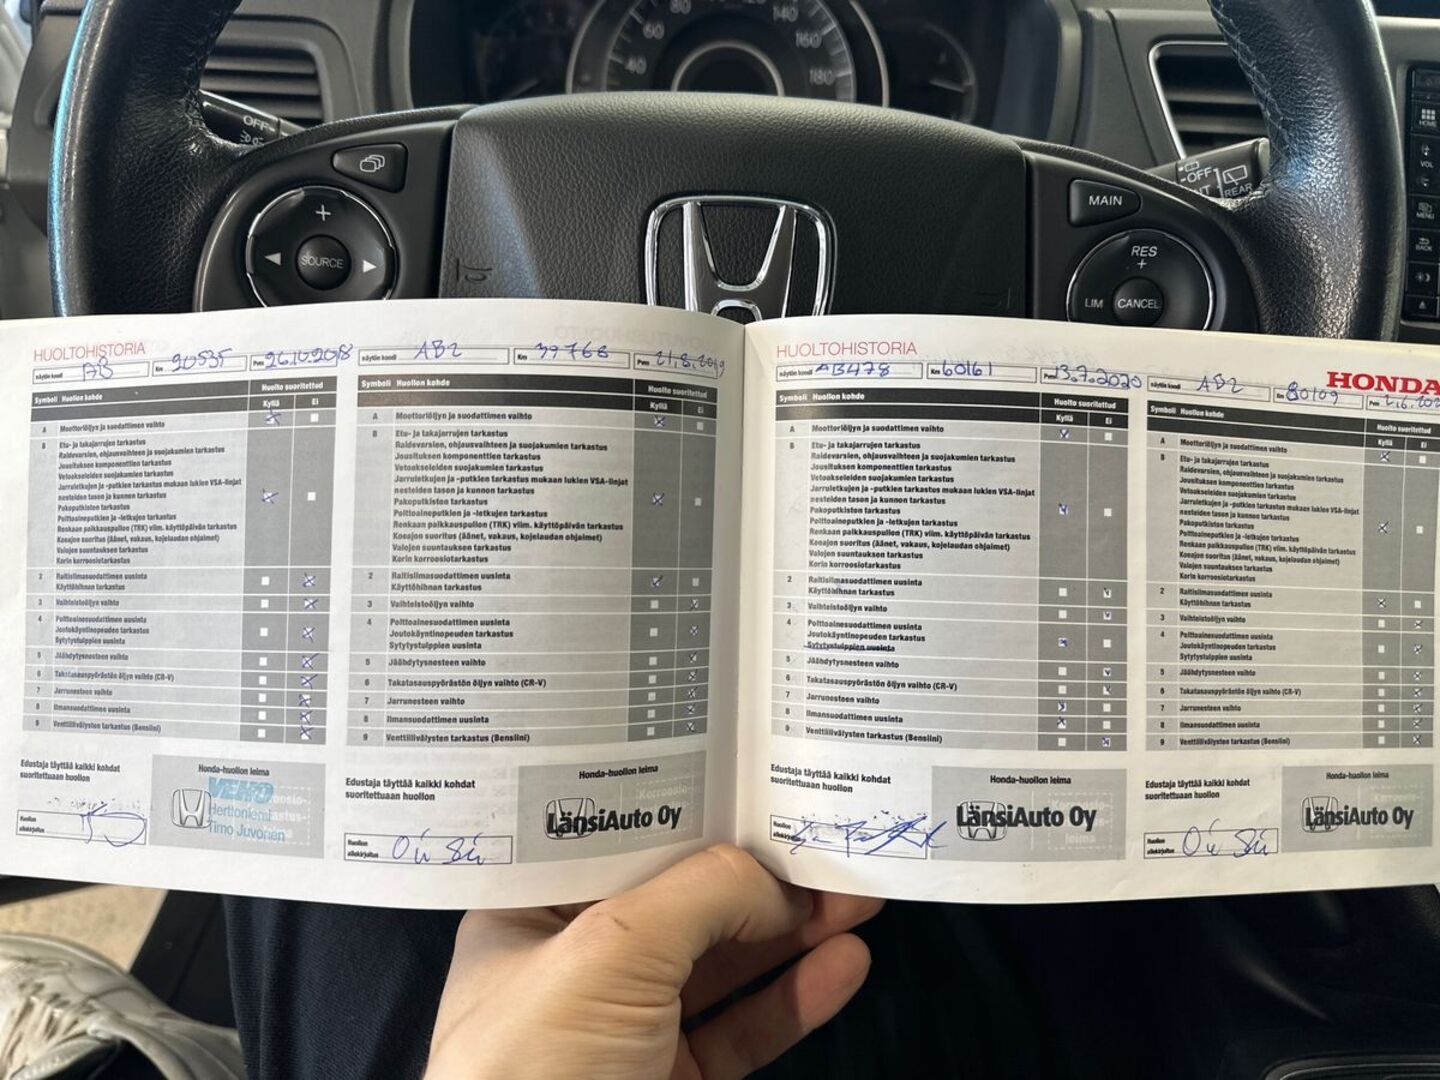 80
140
60
160
40
180
OFF
OFF
REAR
HOME
VOL
MENU
BACK
+
SOURCE
MAIN
RES
+
LIM
CANCEL
HUOLTOHISTORIA
näytön koodi AB
Km 20535
Pvm 26.10.2018
Symboli Huollon kohde
Huolto suoritettud
Kyllä Ei
A Moottoriöljyn ja suodattimen vaihto
B Etu- ja takajarrujen tarkastus
Raidevarsien, ohjausvaihteen ja suojakumien tarkastus
Jousituksen komponenttien tarkastus
Vetoakseleiden suojakumien tarkastus
Jarruletkujen ja -putkien tarkastus mukaan lukien VSA-linjat
nesteiden tason ja kunnon tarkastus
Pakoputkiston tarkastus
Polttoaineputkien ja -letkujen tarkastus
Renkaan paikkauspullon (TRK) viim. käyttöpäivän tarkastus
Koeajon suoritus (äänet, vakaus, kojelaudan ohjaimet)
Valojen suuntauksen tarkastus
Korin korroosiotarkastus
2 Raitisilmasuodattimen uusinta
Käyttöhihnan tarkastus
3 Vaihteistoöljyn vaihto
4 Polttoainesuodattimen uusinta
Joutokäyntinopeuden tarkastus
Sytytystulppien uusinta
5 Jäähdytysnesteen vaihto
6 Takatasauspyörästön öljyn vaihto (CR-V)
7 Jarrunesteen vaihto
8 Ilmansuodattimen uusinta
9 Venttiilivälysten tarkastus (Bensiini)
Edustaja täyttää kaikki kohdat
suoritettuaan huollon
Honda-huollon leima
VEHO
Herttoniemi
Timo Juvonen
Huollon
allekirjoitus
näytön koodi AB2
Km 39768
Pvm 21.8.2019
Symboli Huollon kohde
Huolto suoritettud
Kyllä Ei
A Moottoriöljyn ja suodattimen vaihto
B Etu- ja takajarrujen tarkastus
Raidevarsien, ohjausvaihteen ja suojakumien tarkastus
Jousituksen komponenttien tarkastus
Vetoakseleiden suojakumien tarkastus
Jarruletkujen ja -putkien tarkastus mukaan lukien VSA-linjat
nesteiden tason ja kunnon tarkastus
Pakoputkiston tarkastus
Polttoaineputkien ja -letkujen tarkastus
Renkaan paikkauspullon (TRK) viim. käyttöpäivän tarkastus
Koeajon suoritus (äänet, vakaus, kojelaudan ohjaimet)
Valojen suuntauksen tarkastus
Korin korroosiotarkastus
2 Raitisilmasuodattimen uusinta
Käyttöhihnan tarkastus
3 Vaihteistoöljyn vaihto
4 Polttoainesuodattimen uusinta
Joutokäyntinopeuden tarkastus
Sytytystulppien uusinta
5 Jäähdytysnesteen vaihto
6 Takatasauspyörästön öljyn vaihto (CR-V)
7 Jarrunesteen vaihto
8 Ilmansuodattimen uusinta
9 Venttiilivälysten tarkastus (Bensiini)
Edustaja täyttää kaikki kohdat
suoritettuaan huollon
Honda-huollon leima
LänsiAuto Oy
Huollon
allekirjoitus
HUOLTOHISTORIA
näytön koodi AB478
Km 60161
Pvm 13.7.2020
Symboli Huollon kohde
Huolto suoritettud
Kyllä Ei
A Moottoriöljyn ja suodattimen vaihto
B Etu- ja takajarrujen tarkastus
Raidevarsien, ohjausvaihteen ja suojakumien tarkastus
Jousituksen komponenttien tarkastus
Vetoakseleiden suojakumien tarkastus
Jarruletkujen ja -putkien tarkastus mukaan lukien VSA-linjat
nesteiden tason ja kunnon tarkastus
Pakoputkiston tarkastus
Polttoaineputkien ja -letkujen tarkastus
Renkaan paikkauspullon (TRK) viim. käyttöpäivän tarkastus
Koeajon suoritus (äänet, vakaus, kojelaudan ohjaimet)
Valojen suuntauksen tarkastus
Korin korroosiotarkastus
2 Raitisilmasuodattimen uusinta
Käyttöhihnan tarkastus
3 Vaihteistoöljyn vaihto
4 Polttoainesuodattimen uusinta
Joutokäyntinopeuden tarkastus
Sytytystulppien uusinta
5 Jäähdytysnesteen vaihto
6 Takatasauspyörästön öljyn vaihto (CR-V)
7 Jarrunesteen vaihto
8 Ilmansuodattimen uusinta
9 Venttiilivälysten tarkastus (Bensiini)
Edustaja täyttää kaikki kohdat
suoritettuaan huollon
Honda-huollon leima
LänsiAuto Oy
Huollon
allekirjoitus
HONDA
näytön koodi AB2
Km 80109
Pvm
Symboli Huollon kohde
Huolto suoritettud
Kyllä Ei
A Moottoriöljyn ja suodattimen vaihto
B Etu- ja takajarrujen tarkastus
Raidevarsien, ohjausvaihteen ja suojakumien tarkastus
Jousituksen komponenttien tarkastus
Vetoakseleiden suojakumien tarkastus
Jarruletkujen ja -putkien tarkastus mukaan lukien VSA-linjat
nesteiden tason ja kunnon tarkastus
Pakoputkiston tarkastus
Polttoaineputkien ja -letkujen tarkastus
Renkaan paikkauspullon (TRK) viim. käyttöpäivän tarkastus
Koeajon suoritus (äänet, vakaus, kojelaudan ohjaimet)
Valojen suuntauksen tarkastus
Korin korroosiotarkastus
2 Raitisilmasuodattimen uusinta
Käyttöhihnan tarkastus
3 Vaihteistoöljyn vaihto
4 Polttoainesuodattimen uusinta
Joutokäyntinopeuden tarkastus
Sytytystulppien uusinta
5 Jäähdytysnesteen vaihto
6 Takatasauspyörästön öljyn vaihto (CR-V)
7 Jarrunesteen vaihto
8 Ilmansuodattimen uusinta
9 Venttiilivälysten tarkastus (Bensiini)
Edustaja täyttää kaikki kohdat
suoritettuaan huollon
Honda-huollon leima
LänsiAuto Oy
Huollon
allekirjoitus